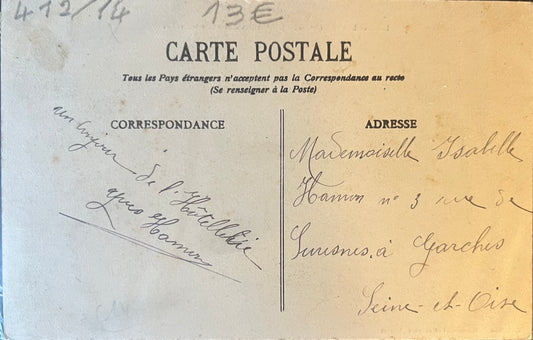 412/14
13€
CARTE POSTALE
Tous les Pays étrangers n'acceptent pas la Correspondance au recto
(Se renseigner à la Poste)
CORRESPONDANCE
un bonjour
de l'Hôtellerie
Hamon
ADRESSE
Mademoiselle Isabelle
Hamon n° 3 rue de
Suresnes à Garches
Seine-et-Oise